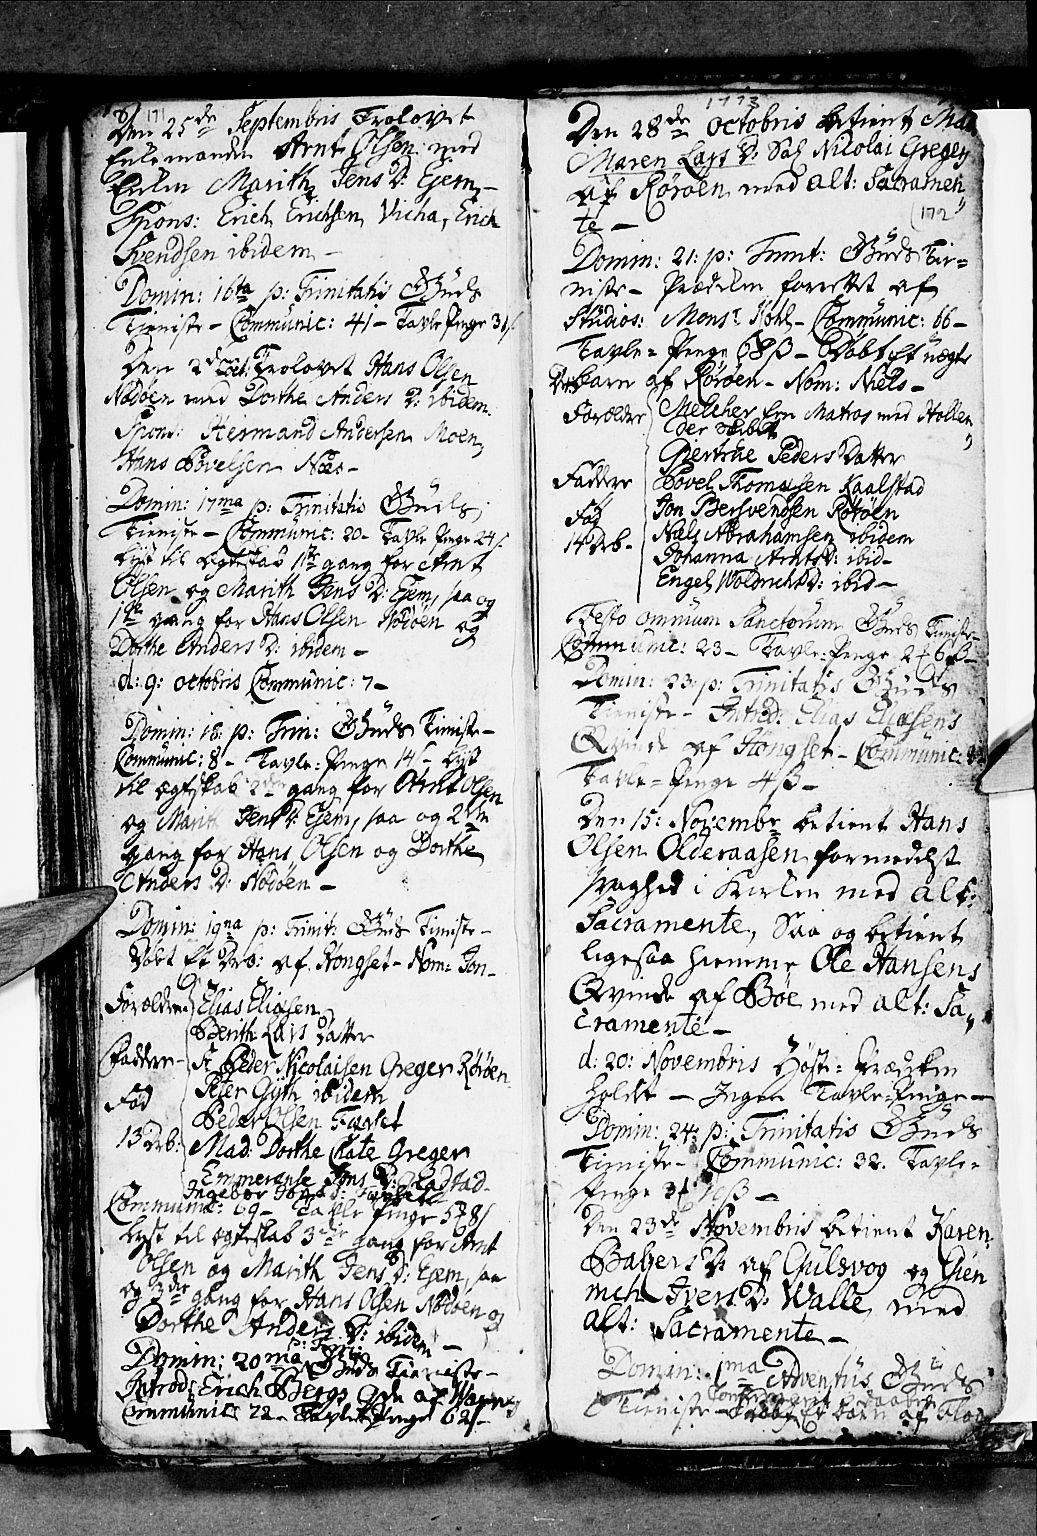 171
Den 25de Septembris Trolovet
Enkemanden Arnt Olsen med
Enken Marith Jens D: Ejem,
Spons: Erich Erichsen Vicha, Erich
Svendsen ibidem –
Domin: 16ta p: Trinitatis GUds
Tieniste – Communic: 41 – Tavle Penge 31
Den 2d Oct: Trolovet Hans Olsen
Nödöen med Dorthe Anders D: ibidem.
Spons: Hermand Andersen Moen,
Hans Povelsen Næs –
Domin: 17ma p: Trinitatis GUds
Tieniste – Communic: 20 – Tavle Penge 24
Lyst til Egteskab 1ste gang for Arnt
Olsen og Marith Jens D: Ejem, saa og
1ste gang for Hans Olsen Nödöen og
Dorthe Anders D: ibidem –
d: 9: Octobris Communic: 7 –
Domin: 18 p: Trin: GUds Tieniste –
Communic: 8 – Tavle-Penge 14 – Lyst
til Egteskab 2den gang for Arnt Olsen
og Marith Jens D: Ejem, saa og 2den
gang for Hans Olsen og Dorthe
Anders D: Nödöen –
Domin: 19na p: Trinit: GUds Tieniste –
Döbt Et Drb: af Stongset – Nom: Jon –
Forældre Elias Eliasen
Berith Lars Datter
Faddere – Sr Peder Nicolaisen Greger Röröen
Föd Peter Gyth ibidem
Peder Olsen
13 Drb: Mad: Dorthe Cate Greger
Emmerense Jens D:
Ingebor
Communic: 69 – Tavle Penge
Lyst til Egteskab 3die gang for Arnt
Olsen og Marith Jens D: Ejem, saa
og 3die gang for Hans Olsen Nödöen og
Dorthe Anders D: ibidem –
Domin: 20ma p: Trin: GUds Tieniste –
Introd: Erich Bergs Qde af
Communic: 22 – Tavle Penge 62
1773
Den 28de Octobris betient Mad
Maren Lars D: Sal Nicolai Gregers
af Röröen med alt: Sacramen
te –
172
Domin: 21: p: Trinit: GUds Tie=
niste – Prædiken forrettet af
Studios: Monsr Kohl – Communic: 66 –
Tavle=Penge – Döbt Et uægte
Drebarn af Röröen – Nom: Niels –
Forældre Melcher En Matros med Hollen
der
Giertrue Peders Datter
Faddere Povel Thomasen Kaalstad
Föd Jon Bersvendsen Röröen
14 Drb – Niels Abrahamsen ibidem
Johanna Arnts D: ibid –
Engel Woldrichs D: ibid –
Festo omnium Sanctorum GUds Tieniste –
Communic: 23 – Tavle-Penge
Domin: 23: p: Trinitatis GUds
Tieniste – Introd: Elias Eliasens
Qvinde af Stongset – Communic:
Tavle=Penge 4 ß –
Den 15: Novembr betient Hans
Olsen Olderaasen formedelst
svaghed i Kirken med alt:
Sacramente, Saa og betient
ligesaa hiemme Ole Hansens
Qvinde af Böe med alt: Sa
cramente –
d: 20: Novembris Höst= Prædiken
holdt – Ingen Tavle=Penge –
Domin: 24: p: Trinitatis GUds
Tieniste – Communic: 32. Tavle=
Penge
Den 23de Novembris betient Karen
Balzers D: af Gulsvog og Gien
meh Ivers D: Walle med
alt: Sacramente –
Domin: 1ma Adventus GUds
Tieniste – Döbt Et barn af